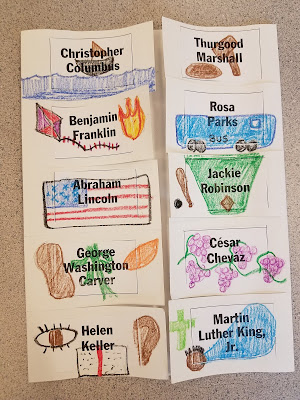 Christopher
Columbus
Benjamin
Franklin
Abraham
Lincoln
George
Washington
Carver
Helen
Keller
Thurgood
Marshall
Rosa
Parks
BUS
Jackie
Robinson
César
Chevaz
Martin
Luther King,
Jr.